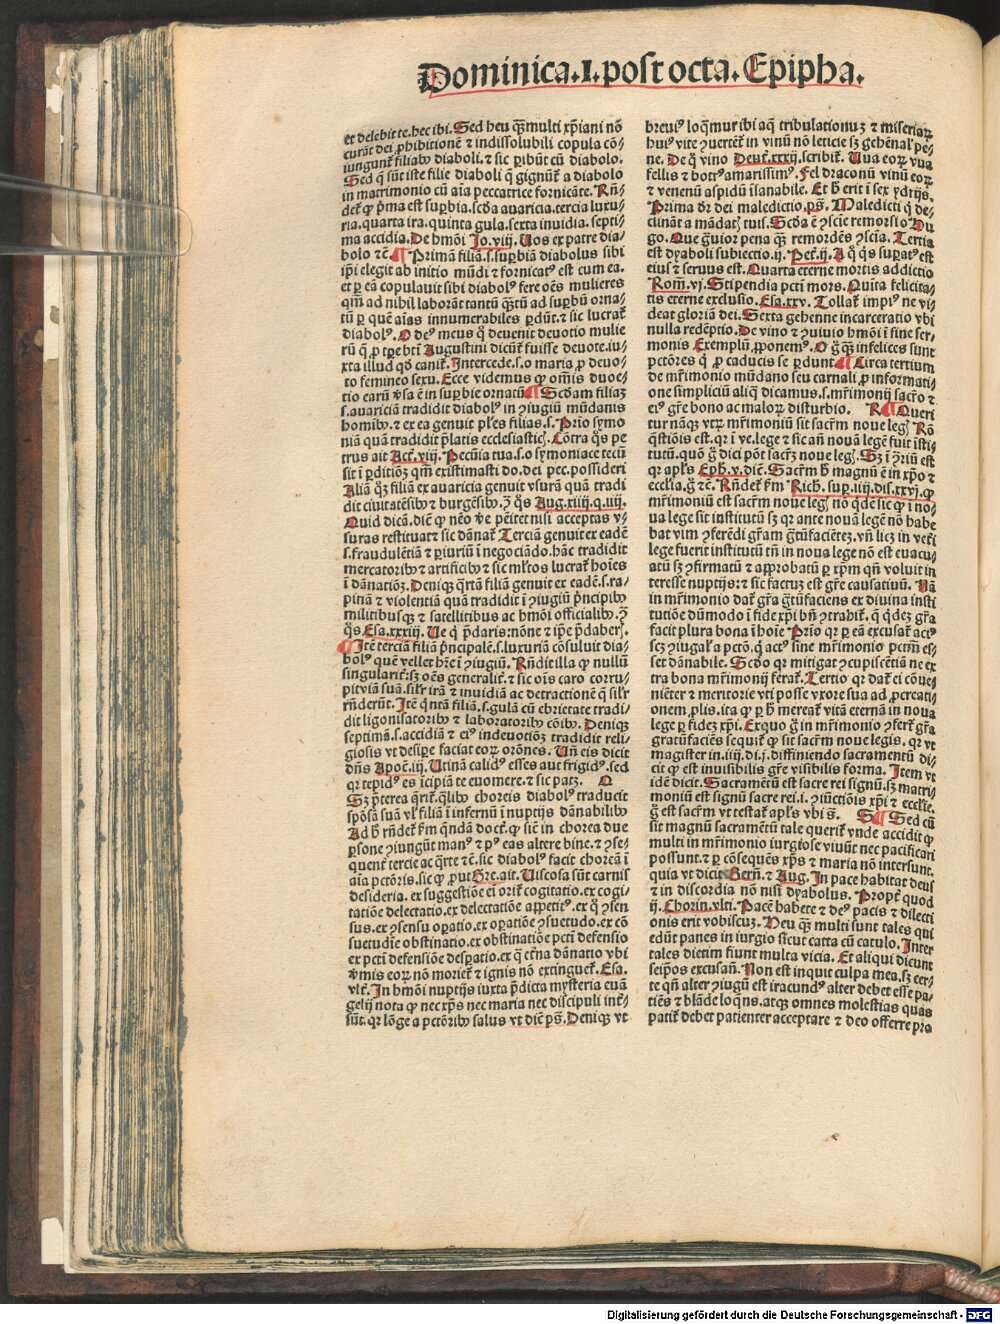 Dominica.I.post octa.Epipha.
et delebit te.hec ibi.Sed heu qȝ multi xp̄iani nō
curāt dei ꝓhibitionē ⁊ indissolubili copula cō⸗
iungunt̄ filiabꝰ diaboli.⁊ sic ꝑibūt cū diabolo.
Sed q̄ sūt iste filie diaboli q̄ gignūt̄ a diabolo
in matrimonio cū aīa peccatrice fornicāte. Rn̄⸗
det̄ ꝙ pͥma est suꝑbia.scd̄a avaricia.tercia luxu⸗
ria.quarta ira.quinta gula.sexta inuidia.septi⸗
ma accidia.De hmōi Jo.viij.Uos ex patre dia⸗
bolo ⁊c̄.¶ Primā filiā.s.suꝑbiā diabolus sibi
ip̄i elegit ab initio mūdi ⁊ fornicatꝰ est cum ea.
et ꝑ eā copulauit sibi diabolꝰ fere oēs mulieres
qm̄ ad nihil laborāt tantū qȝtū ad suꝑbū orna⸗
tū ꝑ quē aīas innumerabiles ꝑdūt.⁊ sic lucrat̄
diabolꝰ.O deꝰ meus q̄ deuenit deuotio mulie
rū q̄ ꝓ tꝑe btī Augustini dicūt̄ fuisse deuote.iu⸗
xta illud qd̄ canit̄.Intercede.s.o maria ꝓ deuo⸗
to femineo sexu.Ecce videmus ꝙ om̄is duoc⸗
tio earū v̄sa ē in suꝑbie ornatū¶ Scd̄am filiaȝ
s.auariciā tradidit diabolꝰ in ↄiugiū mūdanis
hominibꝰ.⁊ ex ea genuit pl̄es filias.s.Prīo symo
niā quā tradidit p̄latis ecclesiastic̄.Cōtra q̄s pe
trus ait Act̄.viij.Pecūia tua.s.o symoniace tecū
sit ī ꝑditiōȝ qm̄ existimasti do.dei pec.possideri
Aliā qȝ filiā ex auaricia genuit vsurā quā tradi
dit ciuitatēsibꝰ ⁊ burgēsibꝰ.ↄ̄ q̄s Aug.xiiij.q.iiij.
Quid dicā.diēm ꝙ nēo v̄e pēitet nisi acceptas v⸗
suras restituat⁊ sic dānat̄ Terciā genuit ex eadē
s.fraudulētiā ⁊ ꝑiuriū ī negociādo.hāc tradidit
mercatoribꝰ ⁊ artificibꝰ ⁊ sic ml̄tos lucrat̄ hoīes
ī dānatiōȝ.Deniqȝ q̄rtā filiā genuit ex eadē.s.ra⸗
pinā ⁊ violentiā quā tradidit ī ↄiugiū pͥncipibꝰ
militibusqȝ ⁊ satellitibus ac hmōi officialibꝰ.ↄ̄
q̄s Esa.xxxiij.Ue q̄ p̄daris:nōne ⁊ ip̄e p̄daber̄.
¶ Itē terciā filiā pͥncipalē.s.luxuriā cōsuluit dia⸗
bolꝰ quē vellet hr̄e ī ↄiugiū.Rn̄dit illa ꝙ nullū
singularit̄:sȝ oēs generalit̄.⁊ sic oīs caro corru⸗
pit viā suā.silr̄ irā ⁊ inuidiā ac detractionē q̄ silr̄
rn̄derūt.Itē q̄ntā filiā.s.gulā cū ebrietate tradi⸗
dit ligonisatoribꝰ ⁊ laboratoribꝰ cōibꝰ.Deniqȝ
septimā.s.accidiā ⁊ eiꝰ indeuotiōȝ tradidit reli⸗
giosis vt desiꝑe faciat eoꝝ orōnes.Un̄ eis dicit
dn̄s Apoc̄.iij.Utinā calidꝰ esses aut frigidꝰ.sed
qr tepidꝰ es īcipiā te euomere.⁊ sic patȝ. Q
Sȝ p̄terea q̄rit̄.q̄libꝰ choreis diabolꝰ traducit
spōsā suā vl̄ filiā ī infernū ī nuptijs dānabilibꝰ
Ad h̄ rn̄det̄ ẜm q̄ndā doct̄.ꝙ siē in chorea due
ꝑsone ↄiungūt manꝰ ⁊ pꝰ eas altere bine.⁊ ↄse⸗
quent̄ tercie ac q̄rte ⁊c̄.sic diabolꝰ facit choreā ī
aīa pctōris.sic ꝙ put Gre.ait.Uiscosa sūt carnis
desideria.ex suggestiōe ei orit̄ cogitatio.ex cogi⸗
tatiōe delectatio.ex delectatiōe appetitꝰ.ex q̄ ↄsen
sus.ex ↄsensu oꝑatio.ex oꝑatiōe ↄsuetudo.ex cō
suetudīe obstinatio.ex obstinatiōe pctī defensio
ex pctī defensiōe desꝑatio.ex q̄ et̄na dānatio vbi
v̄mis eoꝝ nō moriet̄ ⁊ ignis nō extinguet̄.Esa.
vlt̄.In hmōi nuptijs iuxta p̄dicta mysteria euā
gelij nota ꝙ nec xp̄s nec maria nec discipuli int̄⸗
sūt.qr lōge a pctōribꝰ salus vt diēm pš.Deniqȝ vt
breuiꝰ loq̄mur ibi aq̄ tribulationuȝ ⁊ miseriaꝝ
huiꝰ vite ↄuertēt̄ in vinū nō leticie sȝ gehēnal̄ pe⸗
ne.De q̄ vino Deut̄.xxxij.scribit̄.Uua eoꝝ vua
fellis ⁊ botrꝰ amarissimꝰ.Fel draconū vinū eoꝝ
⁊ venenū aspidū īsanabile.Et h̄ erit ī sex ydrijs.
Prima dr̄ dei maledictio.pš.Maledicti q̄ de⸗
clināt a mādat̄ tuis.Scd̄a ē ↄscīe remorsio Hu
go.Que ḡuior pena qȝ remordēs ↄscīa.Tertia
est dyaboli subiectio.ij.Pet̄.ij.A q̄ q̄s suꝑatꝰ est
eiuſ ⁊ seruus est.Quarta eterne mortis addictio
Rom̄.vj.Stipendia pctī mors.Quīta felicita⸗
tis eterne exclusio.Esa.xxv.Tollat̄ impiꝰ ne vi⸗
deat gloriā dei.Sexta gehenne incarceratio vbi
nulla redēptio.De vino ⁊ ↄuiuio hmōi ī fine ser⸗
monis Exemplū ꝓponemꝰ.O ḡ qȝ infelices sunt
pctōres q̄ ꝓ caducis se ꝑdunt¶ Circa tertium
de mr̄imonio mūdano seu carnali ꝓ informati⸗
one simpliciū aliq̄ dicamus.s.mr̄imonij sacr̄o ⁊
eiꝰ gr̄e bono ac maloꝝ disturbio. R¶ Queri
tur nāqȝ vtꝝ mr̄imoniū sit sacr̄m noue leḡ Rō
q̄stiōis est.qr ī ve.lege ⁊ sic añ nouā legē fuit īsti⸗
tutū.quō ḡ dici pōt sacr̄ȝ noue leḡ.Sȝ ī ↄ̄riū est
qr apl̄s Eph̄.v.diē.Sacr̄m h̄ magnū ē in xp̄o ⁊
eccl̄ia.ḡ ⁊c̄.Rn̄det̄ ẜm Rich̄.suꝑ.iiij.dis.xxvj.ꝙ
mr̄imoniū est sacr̄m noue leḡ nō q̄dē sic ꝙ ī no⸗
ua lege sit institutū sȝ qr ante nouā legē nō habe
bat vim ↄferēdi gr̄am gr̄tūfaciētēȝ.vn̄ licȝ in vet̄i
lege fuerit institutū tn̄ in noua lege nō est euacu⸗
atū sȝ ↄfirmatū ⁊ approbatū ꝑ xp̄m qn̄ voluit in
teresse nuptijs:⁊ sic factuȝ est gr̄e causatiuū. Nā
in mr̄imonio dat̄ gr̄a gr̄tūfaciens ex diuina insti
tutiōe dūmodo ī fide xp̄i bn̄ ↄtrahit̄.q̄ q̄dez gr̄a
facit plura bona ī hoīe Prīo qr ꝑ eā excusat̄ actꝰ
seȝ ↄiugal̄ a pctō.q̄ actꝰ sine mr̄imonio pctm̄ es⸗
set dānabile.Scd̄o qr mitigat ↄcupiscētiā ne ex
tra bona mr̄imonij ferat̄.Tertio qr dat̄ ei cōue⸗
niēter ⁊ meritorie vti posse vxore sua ad ꝓcreati⸗
onem ꝓlis.ita ꝙ ꝑ h̄ mereat̄ vitā eternā in noua
lege ꝑ fidez xp̄i.Ex quo ḡ in mr̄imonio ↄfert̄ gr̄a
gratūfaciēs sequit̄ ꝙ sit sacr̄m noue legis.qr vt
magister in.iiij.di.j.diffiniendo sacramentū di⸗
cit ꝙ est inuisibilis gr̄e visibilis forma. Item vt
idē dicit.Sacramētū est sacre rei signū.sȝ matri⸗
moniū est signū sacre rei.i.ↄiūctiōis xp̄i ⁊ eccl̄ie.
ḡ est sacr̄m vt testat̄ apl̄s vbi š. S¶ Sed cū
sit magnū sacramētū tale querit̄ vnde accidit ꝙ
multi in mr̄imonio iurgiose viuūt nec pacificari
possunt.⁊ ꝑ cōsequēs xp̄s ⁊ maria nō intersunt.
quia vt dicit Bern̄.⁊ Aug.In pace habitat deus
⁊ in discordia nō nisi dyabolus. Propt̄ quod
ij.Chorin.vlti.Pacē habete ⁊ deꝰ pacis ⁊ dilecti
onis erit vobiscuȝ. Heu qȝ multi sunt tales qui
edūt panes in iurgio sicut catta cū catulo. Inter
tales dietim fiunt multa vicia. Et aliqui dicunt
seip̄os excusan̄.Non est inquit culpa mea.sȝ cer⸗
te qn̄ alter ↄiugū est iracundꝰ alter debet esse pa⸗
tiēs ⁊ blāde loq̄ns.atqȝ omnes molestias quas
patit̄ debet patienter acceptare ⁊ deo offerre pro
Digitalisierung gefördert durch die Deutsche Forschungsgemeinschaft - DFG